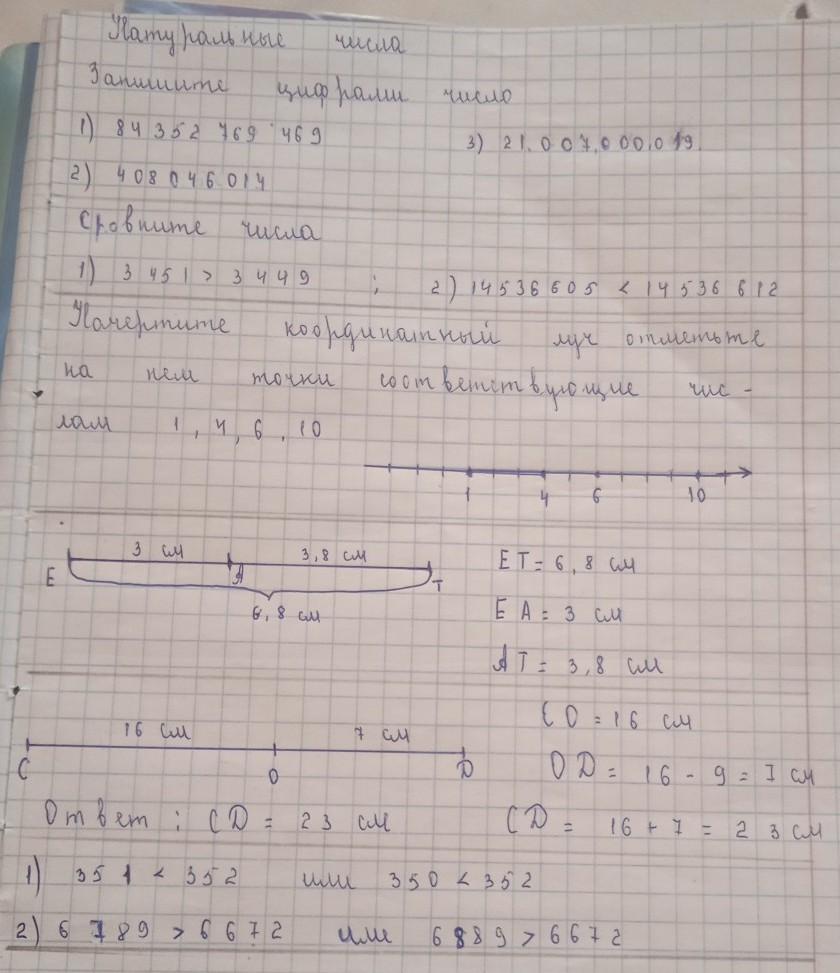 Натуральные числа
Запишите цифрами число
1) 84 352 769 469
3) 21.007.000.019.
2) 408 046 014
Сровните числа
1) 3 451 > 3 449 ; 2) 14 536 605 < 14 536 612
Начертите координатный луч отметьте
на нем точки соответствующие чис -
лам 1, 4, 6, 10
1 4 6 10
3 см 3,8 см
E A T
6,8 см
ET = 6,8 см
EA = 3 см
AT = 3,8 см
CO = 16 см
16 см 7 см
C O D
OD = 16 - 9 = 7 см
Ответ : CD = 23 см
CD = 16 + 7 = 23 см
1) 351 < 352 или 350 < 352
2) 6 789 > 6 672 или 6 889 > 6 672